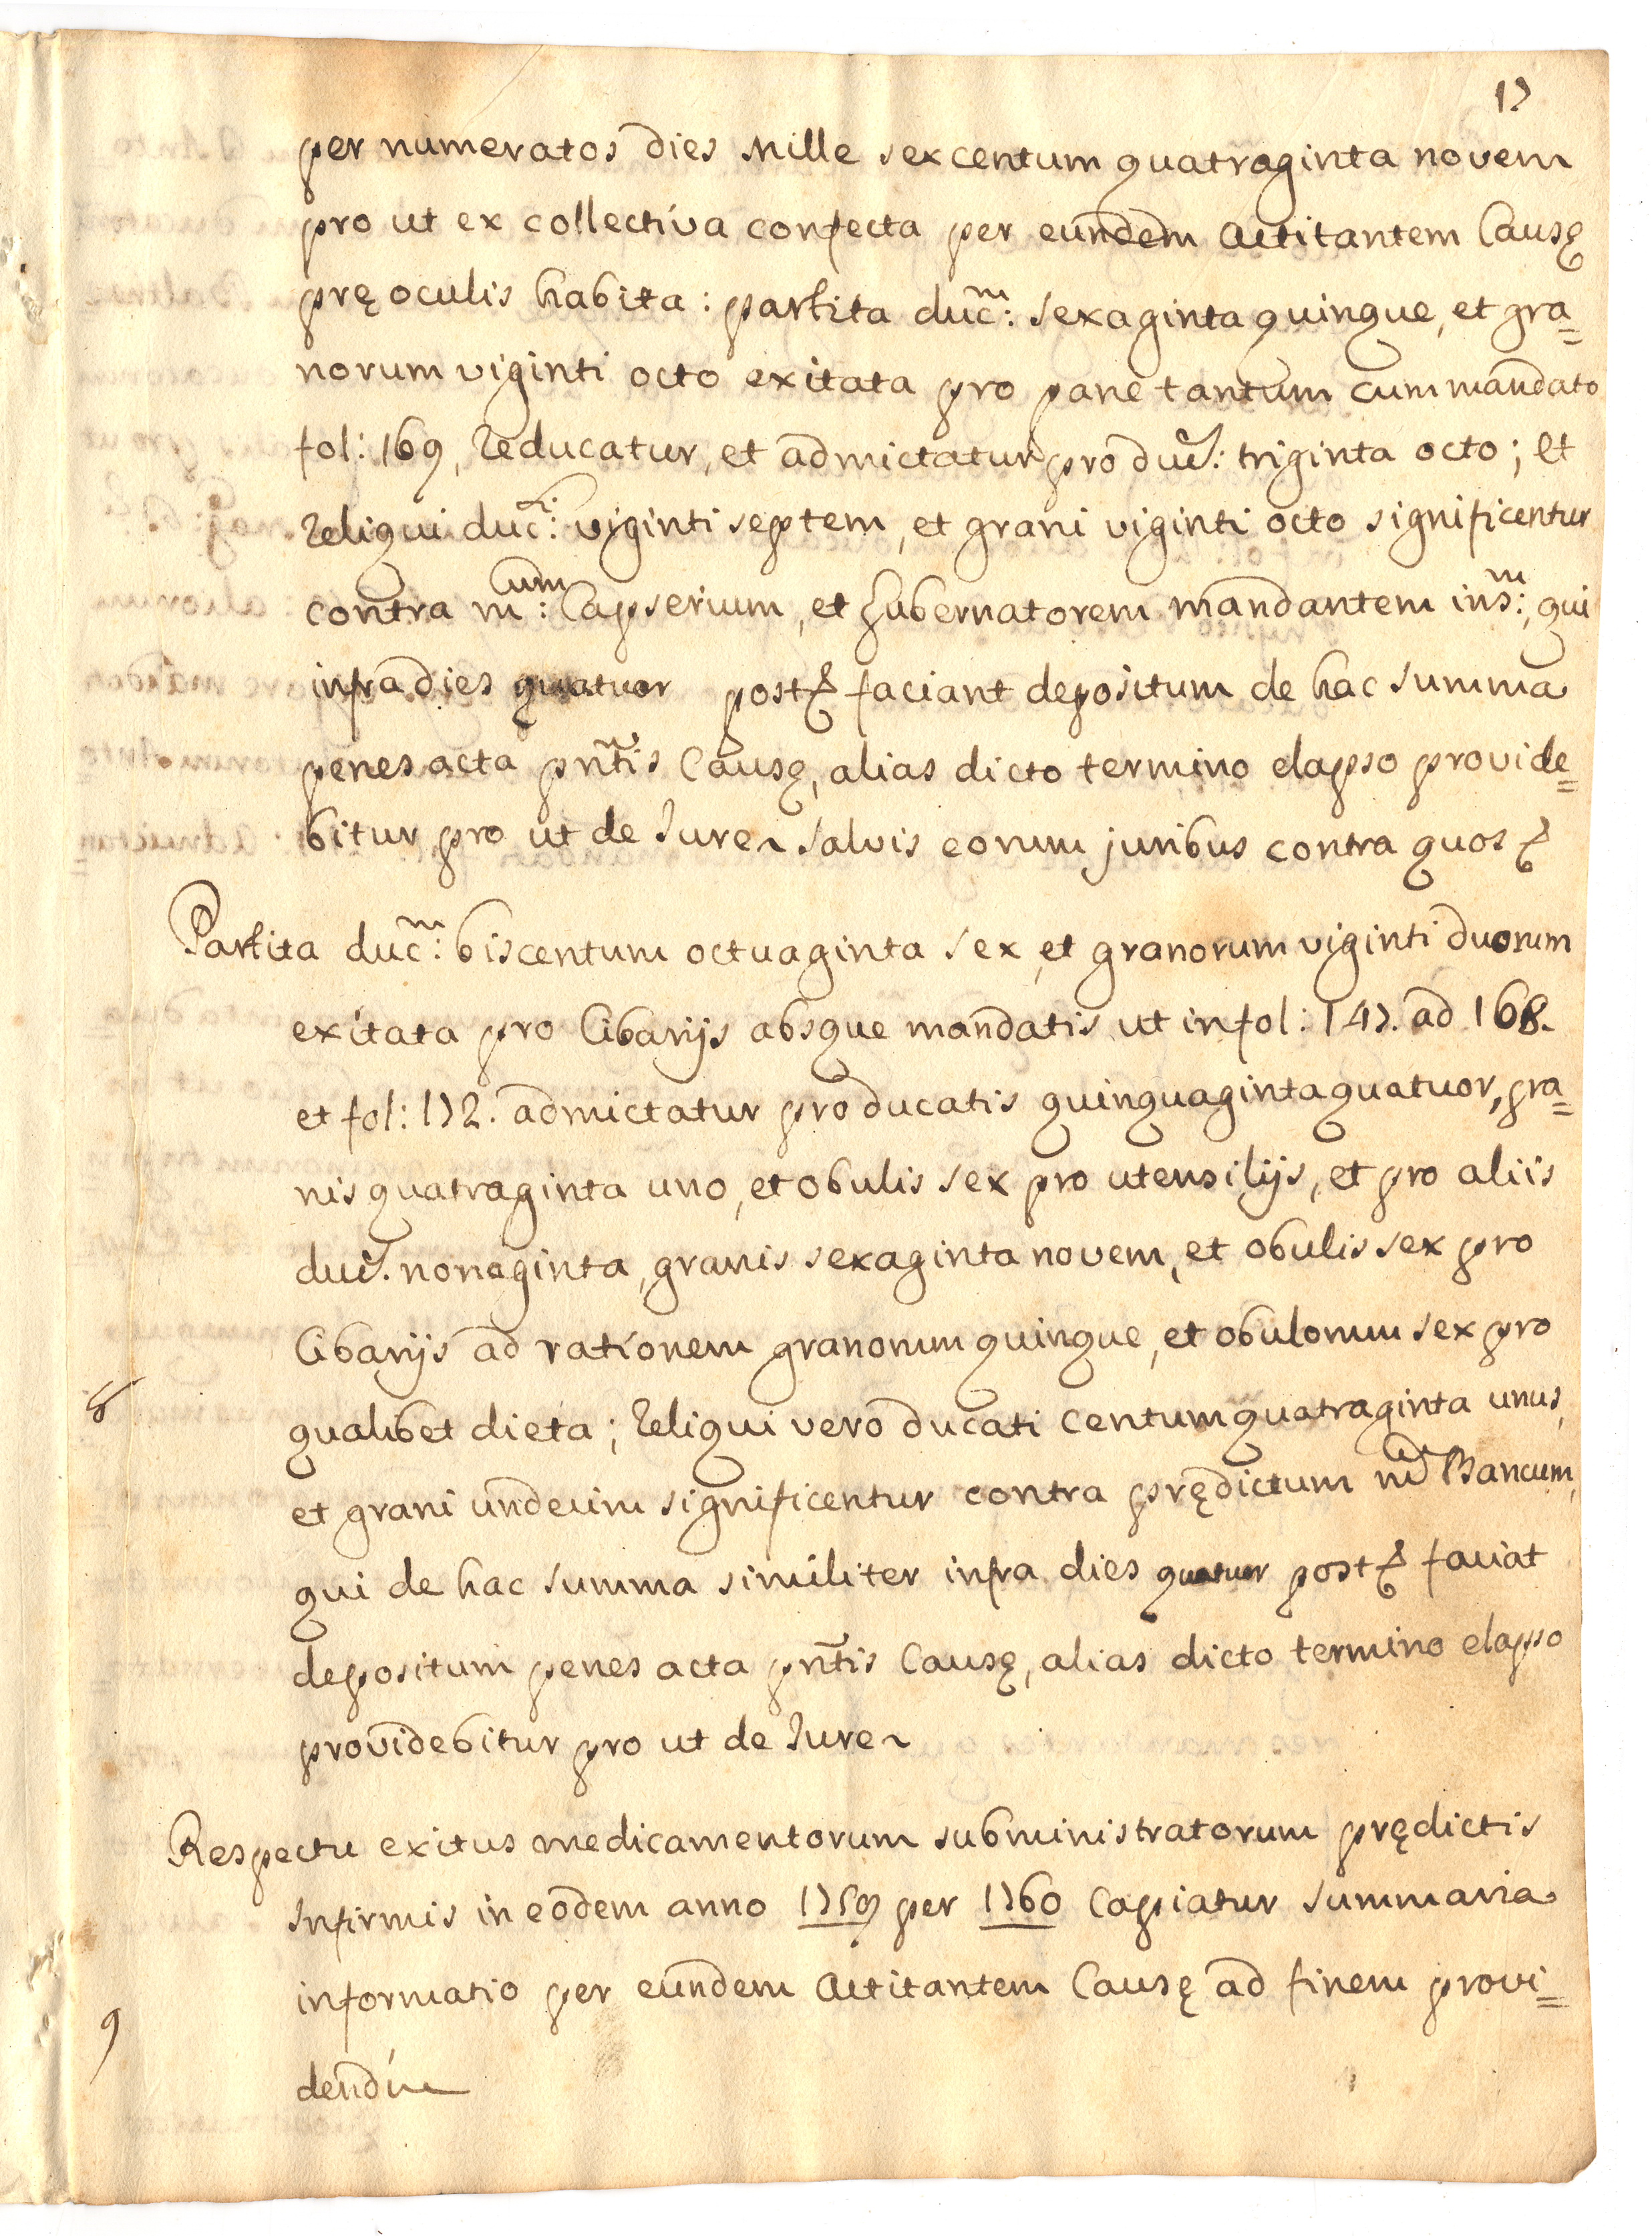 17
per numeratos dies Mille sexcentum quatraginta novem
pro ut ex collectiva confecta per eundem Actitantem Causę
prę oculis habita: partita duc:m sexaginta quinque, et gra=
norum viginti octo exitata pro pane tantum cum mandato
fol: 169, Reducatur, et admictatur pro duc.s: triginta octo; et
Reliqui duc:ti viginti septem, et grani viginti octo significentur
contra m:cum Capserium, et Gubernatorem mandantem ins:m, qui
infra dies quatuor post& faciant depositum de hac summa
penes acta pñtis Causę, alias dicto termino elapso provide=
bitur pro ut de Jure salvis eorum juribus contra quos &
Partita duc:m biscentum octuaginta sex, et granorum viginti duorum
exitata pro Cibarijs absque mandatis ut in fol: 147. ad 168.
et fol: 172. admictatur pro ducatis quinquaginta quatuor, gra=
nis quatraginta uno, et obulis sex pro utensilijs, et pro aliis
duc.s nonaginta, granis sexaginta novem, et obulis sex pro
Cibarijs ad rationem granorum quinque, et obulorum sex pro
8
qualibet dieta; Reliqui vero ducati centum quatraginta unus,
et grani undecim significentur contra prędictum m.cum Bancum,
qui de hac summa similiter infra dies quatuor post& faciat
depositum penes acta pñtis Causę, alias dicto termino elapso
providebitur pro ut de Jure
Respectu exitus medicamentorum subministratorum prędictis
Infirmis in eodem anno 1759 per 1760 Capiatur summaria
informatio per eundem Actitantem Causę ad finem provi=
9
dendi